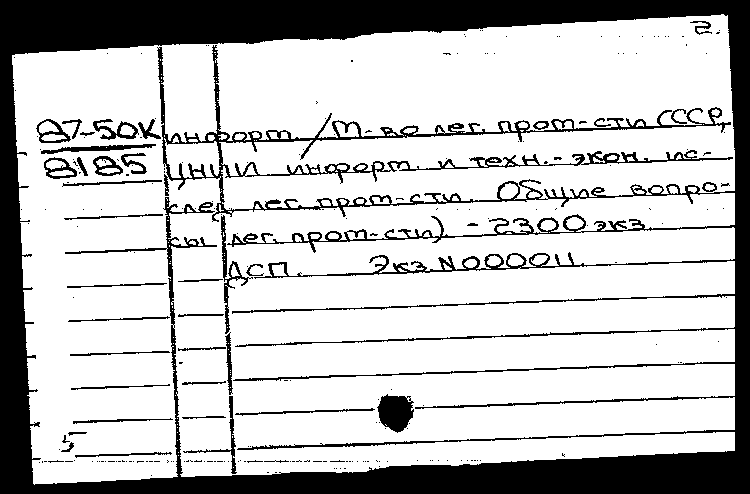 2.
87-50К информ. / М-во лег. пром-сти СССР,
8185 ЦНИИ информ. и техн.-экон. ис-
след. лег. пром-сти. Общие вопро-
сы лег. пром-сти) - 2300 экз.
ДСП. Экз N000011.
5